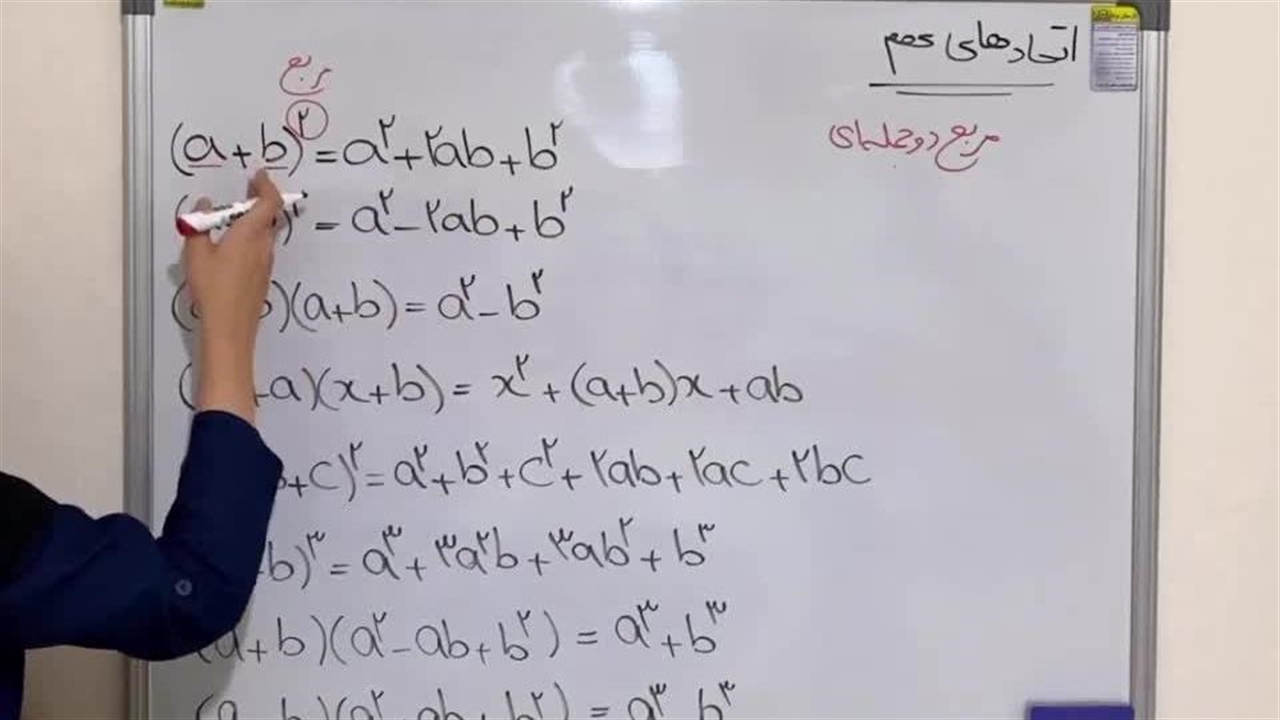 اتحادهای مهم
مربع دوجمله‌ای
مربع
(a+b)^۲ = a^۲+۲ab+b^۲
)^۲ = a^۲-۲ab+b^۲
)(a+b) = a^۲-b^۲
a)(x+b) = x^۲+(a+b)x+ab
+c)^۲ = a^۲+b^۲+c^۲+۲ab+۲ac+۲bc
b)^۳ = a^۳+۳a^۲b+۳ab^۲+b^۳
(a+b)(a^۲-ab+b^۲) = a^۳+b^۳